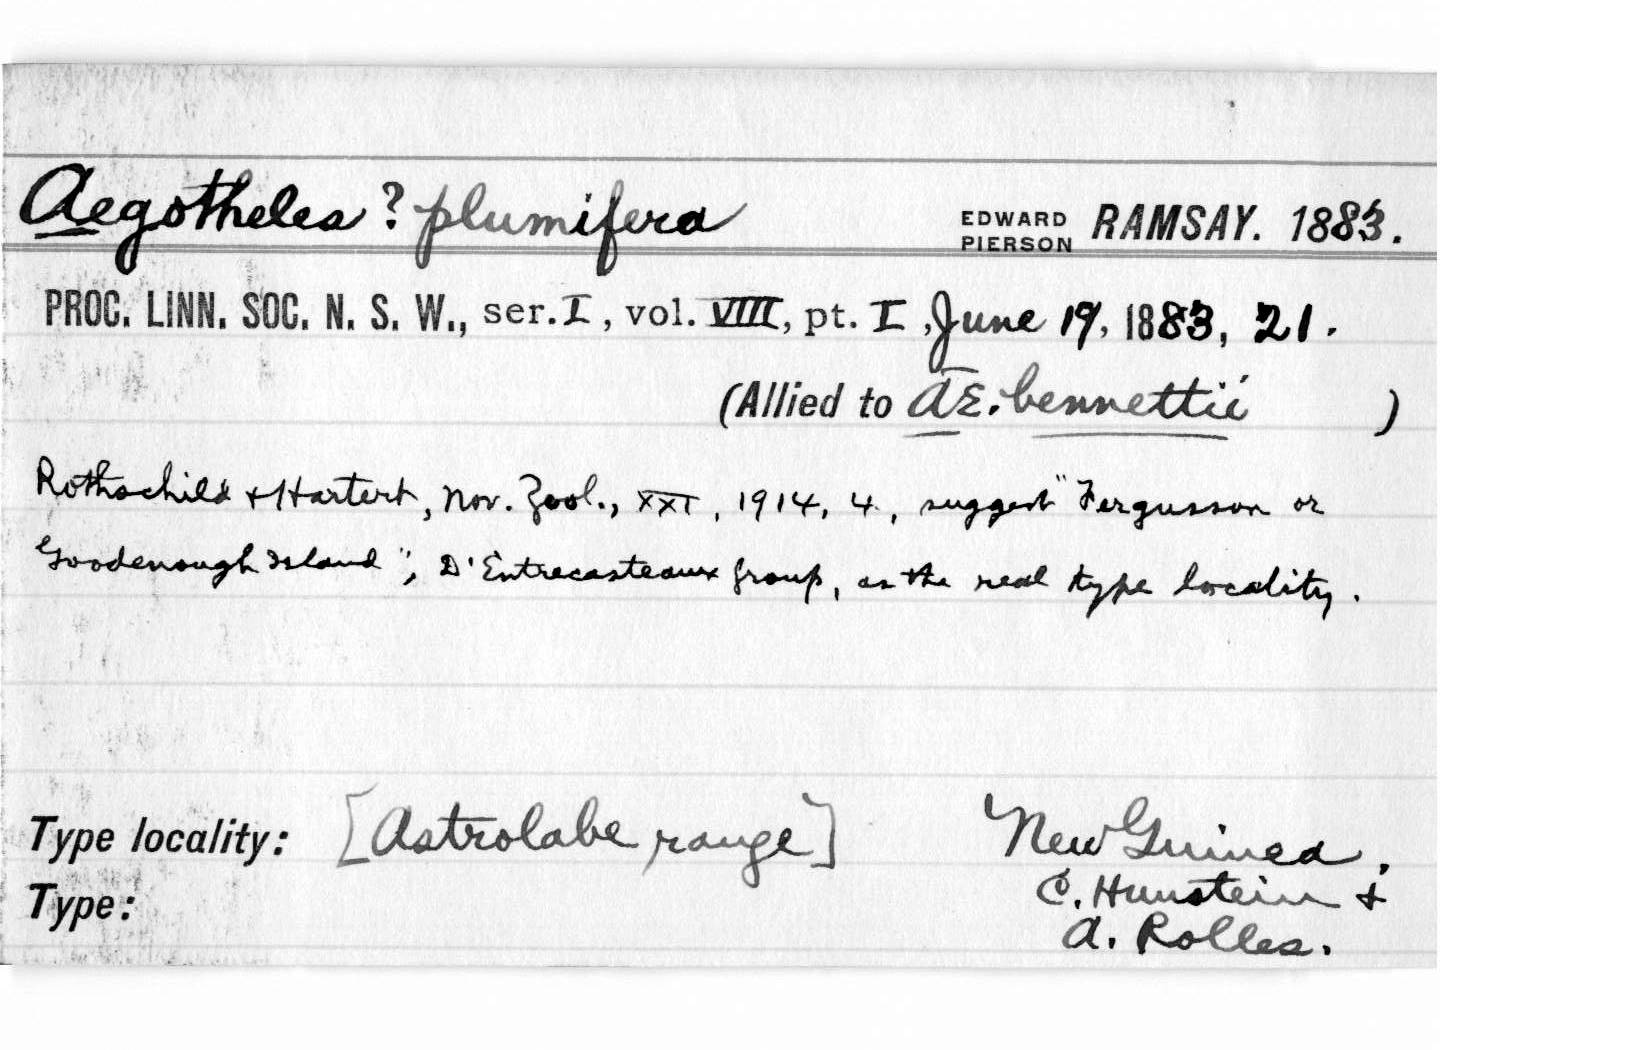 Aegotheles ? plumifera EDWARD PIERSON RAMSAY. 1883.
PROC. LINN. SOC. N. S. W., ser. I, vol. VIII, pt. I, June 19, 1883, 21.
(Allied to AE. bennettii )
Rothschild & Hartert, Nov. Zool., XXI, 1914, 4, suggest "Fergusson or
Goodenough Island", D'Entrecasteaux group, as the real type locality.
Type locality: [Astrolabe range] New Guinea,
Type: C. Hunstein &
A. Rolles.